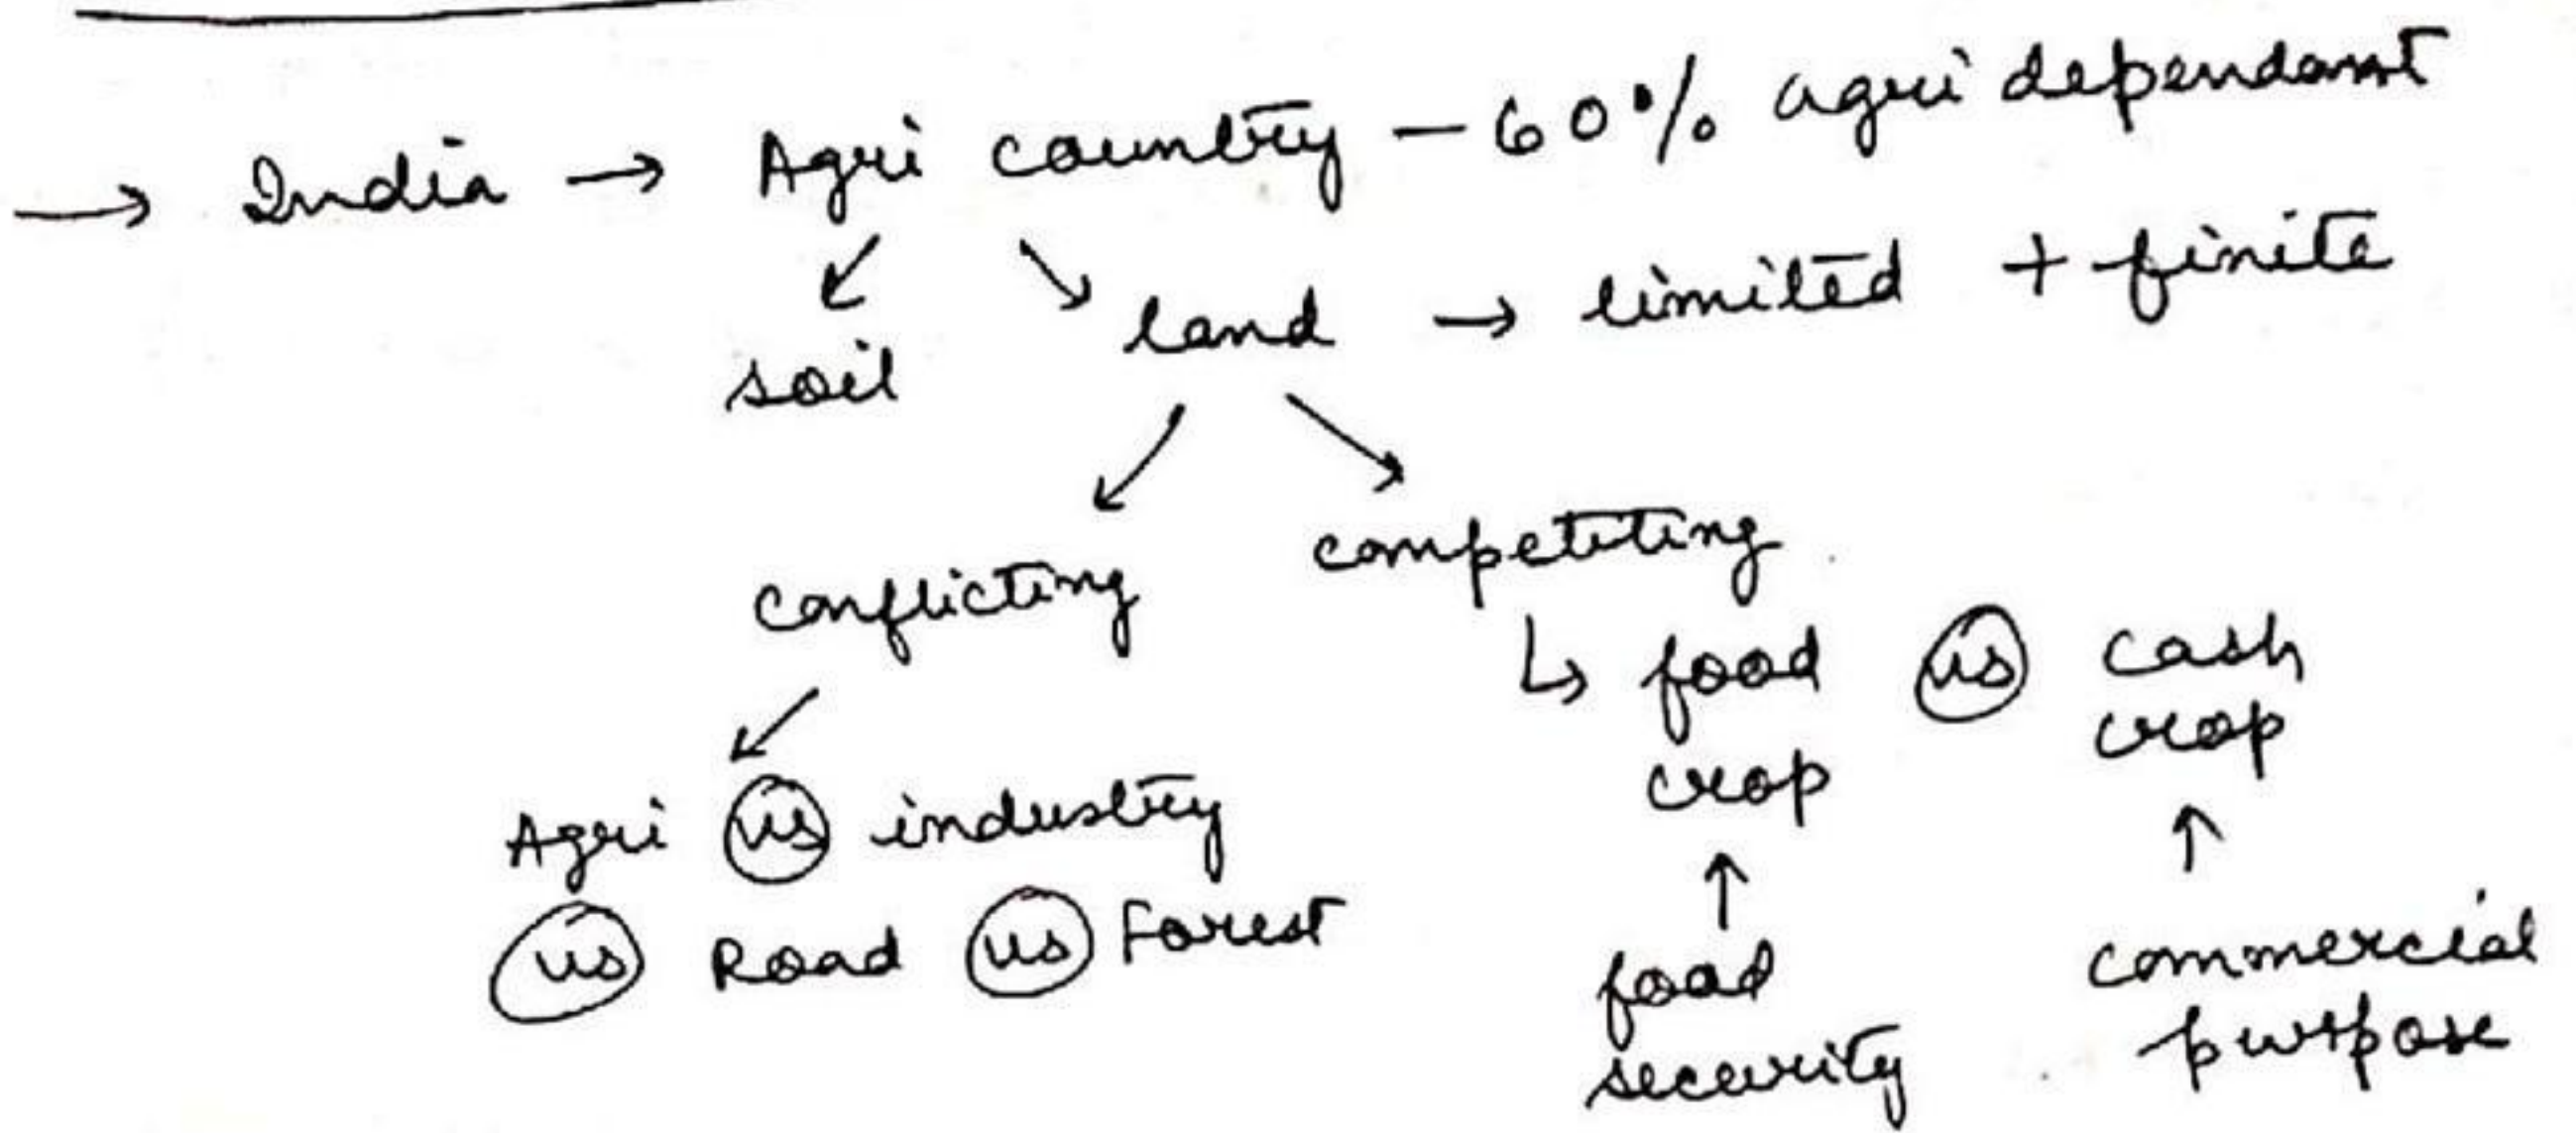 → India → Agri country – 60% agri dependant
↙ ↘
soil land → limited + finite
↙ ↘
conflicting competiting
↙ ↳ food vs cash
crop crop
Agri vs industry ↑ ↑
vs Road vs Forest food commercial
security purpose